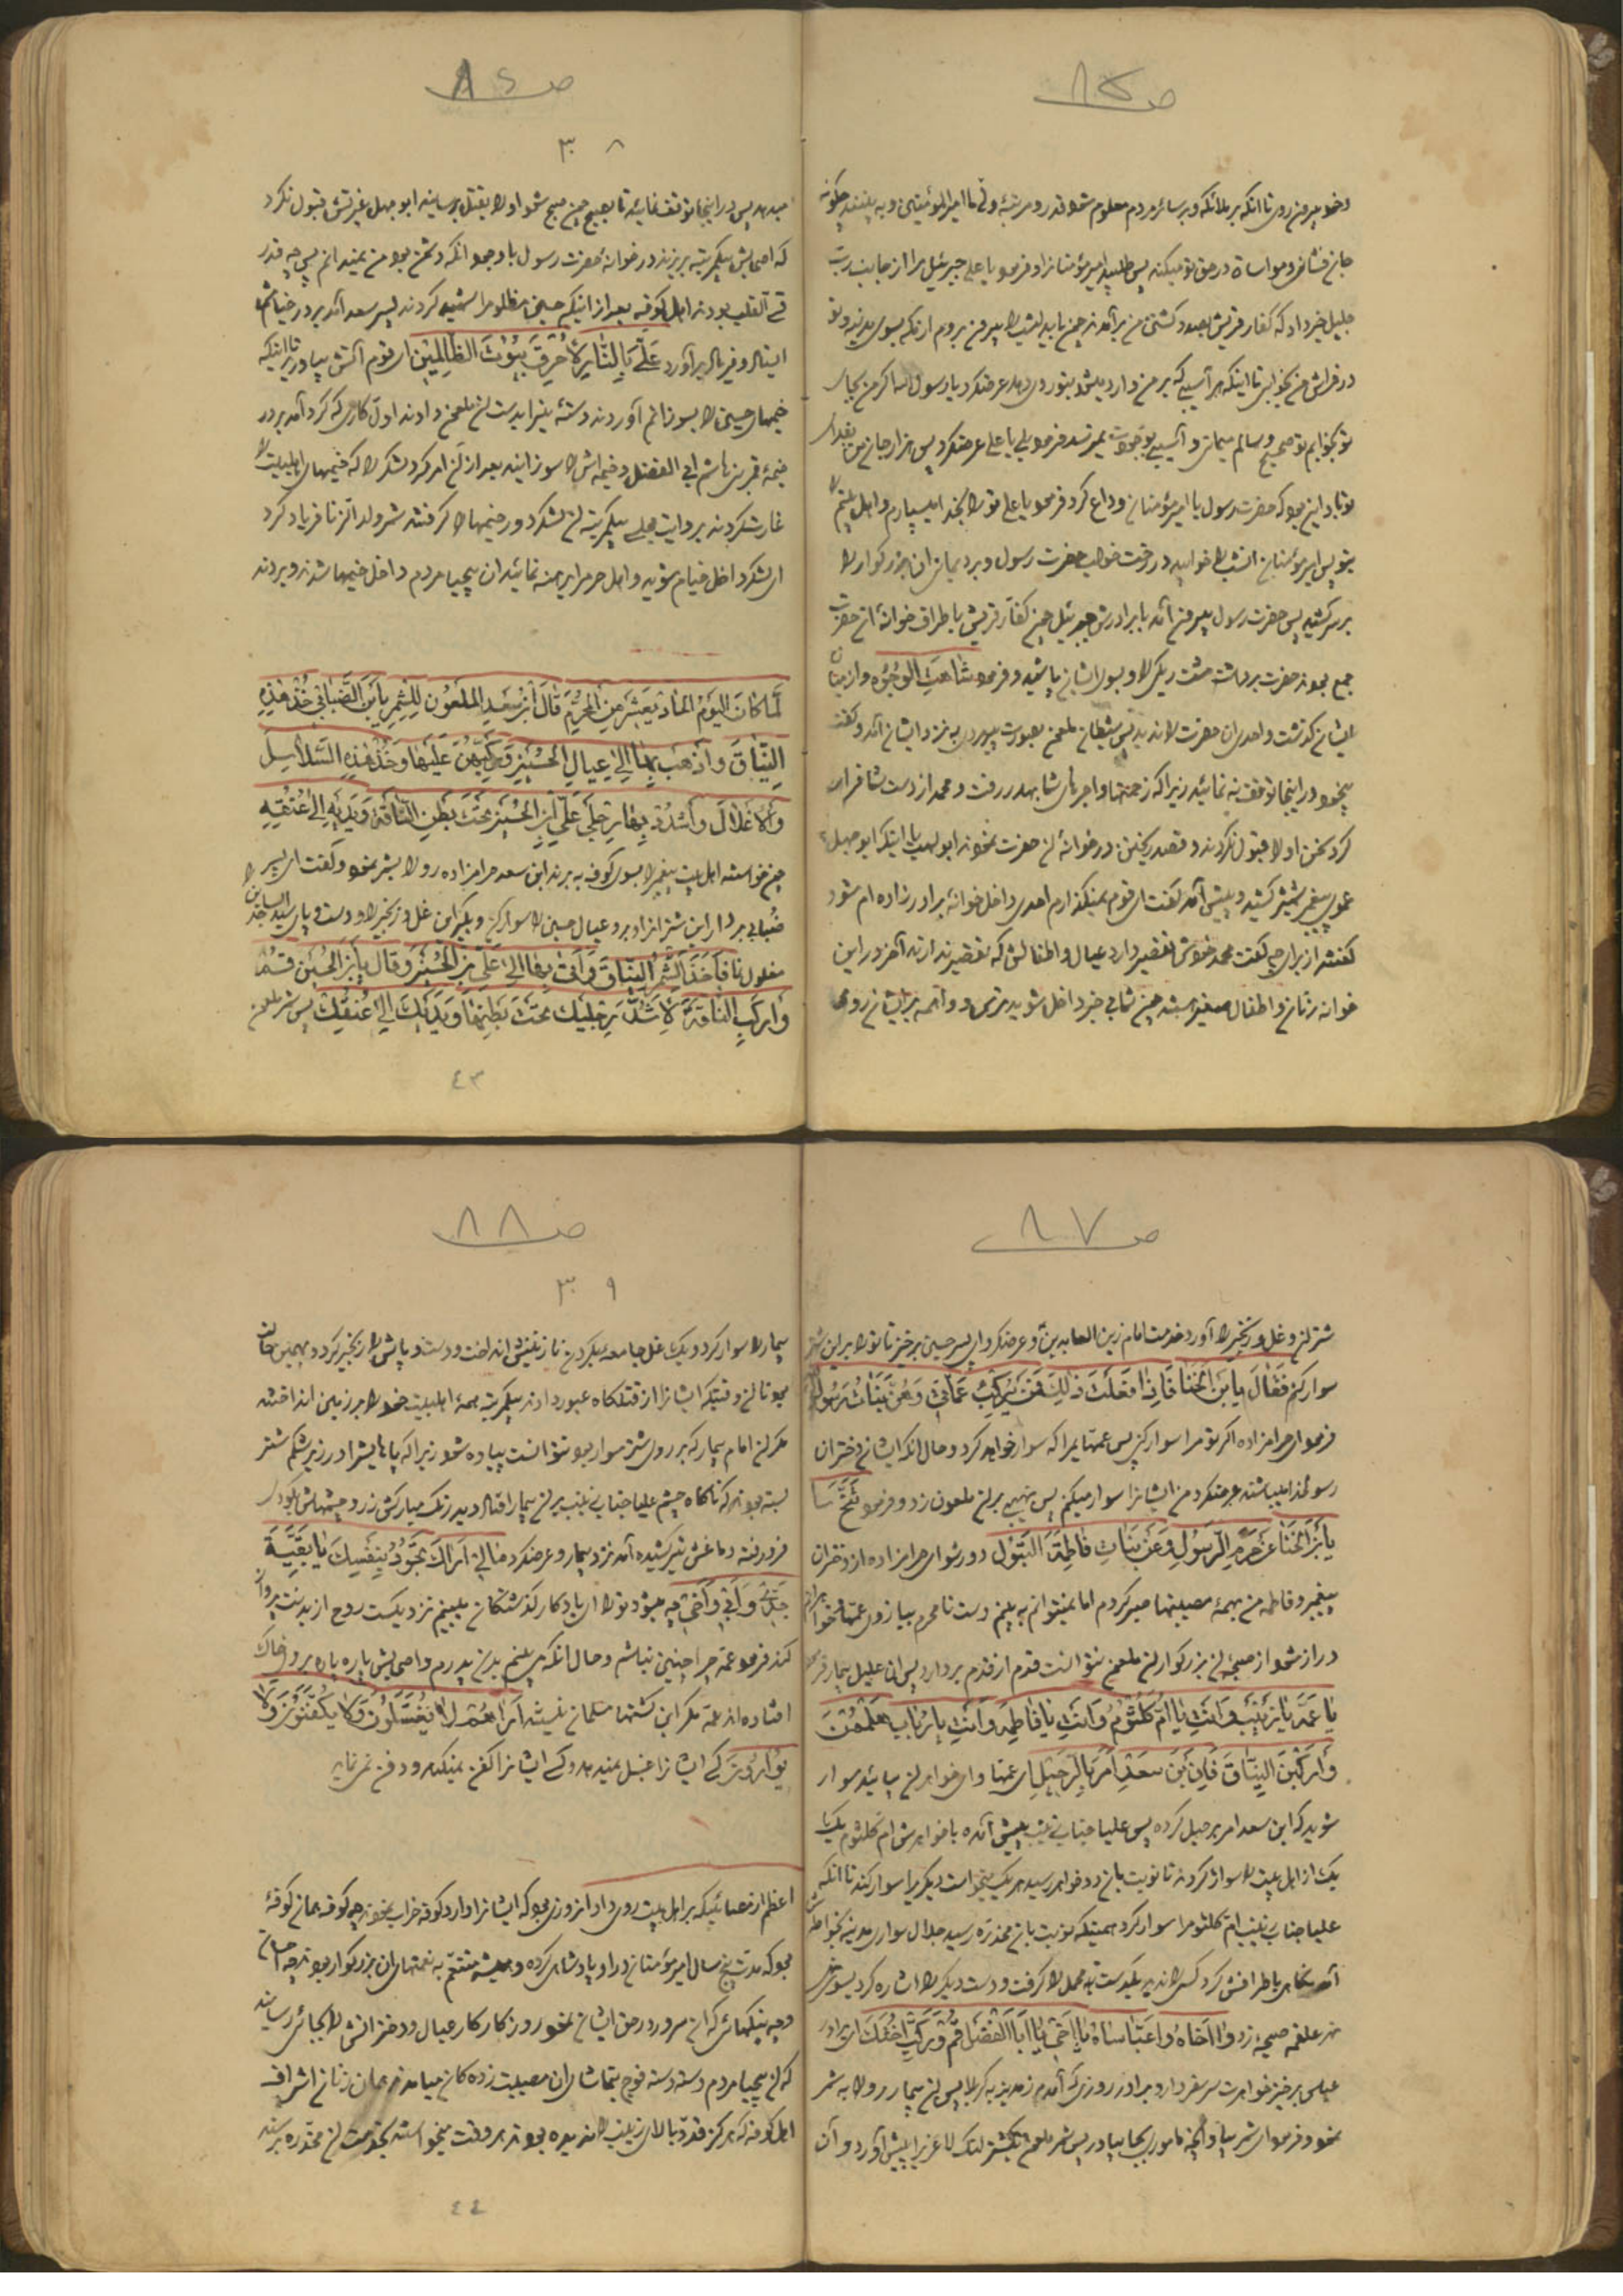 ص ٨٥
و خود بیرون روی تا آنکه بر ملائکه و بر سائر مردم معلوم شود قدر و مرتبهٔ ولی ما امیر المؤمنین و به بینند چگونه
جان فشانی و مواساة در حق تو میکند پس طلبید امیر مؤمنان را و فرمود یا علی جبرئیل مرا از جانب رب
جلیل خبر داد که کفار قریش بصدد کشتن من بر آمدند من باید امشب بیرون بروم از مکه بسوی مدینه و تو
در فراش من بخوابی تا اینکه هر آسیبی که بر من وارد میشد بتو روی دهد عرضکرد یا رسول الله اگر من بجای
تو بخوابم تو صحیح و سالم میمانی و آسیبی بوجودت نمیرسد فرمود بلی یا علی عرضکرد پس هزار جان من بفدای
تو باد این بود که حضرت رسول با امیر مؤمنان وداع کرد فرمود یا علی تو را بخدا میسپارم و اهل بیتم را
بتو پس امیر مؤمنان انشب را خوابید در رخت خواب حضرت رسول و برد یمانی ان بزرگوار را
بر سر کشید پس حضرت رسول بیرون آمد با برادرش جبرئیل چون کفار قریش باطراف خوانهٔ انحضرت
جمع بودند حضرت برداشت مشت ریگی را و بسوی ایشان پاشید و فرمود شاهَتِ الوُجُوه و از میان
ایشان گذشت و احدی ان حضرت را ندید پس شیطان ملعون بصورت پیرمردی به نزد ایشان آمد و گفت
بیخود در اینجا توقف نه نمائید زیرا که زحمتها و اجرهای شما بهدر رفت و محمد از دست شما فرار
کرد سخن او را قبول نکردند و قصد ریختن در خوانهٔ ان حضرت نمودند ابو لهب یا اینکه ابو جهل
عموی پیغمبر شمشیر کشید و پیش آمد گفت ای قوم نمیگذارم احدی داخل خوانهٔ برادر زاده ام شود
گفتند از برای چه گفت محمد خودش تقصیر دارد عیال و اطفالش که تقصیر ندارند آخر در این
خوانه زنان و اطفال صغیر هستند چون شما بی خبر داخل شوید ترس و واهمه بر ایشان روی
ص ٨٦
٣٠٨
میدهد پس در اینجا توقف نمائید تا بصبح چون صبح شود او را بقتل برسانید ابو جهل غیرتش قبول نکرد
که اصحابش بیکمرتبه بریزند در خوانهٔ حضرت رسول با وجود انکه دشمن بود من نمیدانم پس چه قدر
قسی القلب بودند اهل کوفه بعد از اینکه حسین مظلوم را شهید کردند پسر سعد آمد بر در خیام
ایستاد و فریاد بر آورد عَلَیَّ بِالنّارِ لِأُحْرِقَ بُیُوتَ الظّالِمینِ ای قوم آتش بیاورید تا اینکه
خیمهای حسین را بسوزانم آوردند دستهٔ نیزا بدست ان ملعون دادند اول کاری که کرد آمد بر در
خیمهٔ قمر بنی هاشم ابی الفضل و خیمه اش را سوزانید بعد از ان امر کرد لشکر را که خیمهای اهلبیت را
غارت کردند بروایت مجلسی بیکمرتبه ان لشکر دور خیمها را گرفتند شمر ولد الزنا فریاد کرد
ای لشکر داخل خیام شوید و اهل حرم را برهنه نمائید ان بیحیا مردم داخل خیمها شدند و بردند
لَمّا کانَ الیَوْمُ الحادِیَعَشَرَ مِنَ المُحَرَّمِ قالَ ابْنُ سَعْدِ المَلْعُونِ لِلشِّمْرِ یَا بْنَ الضَّبابی خُذْ هٰذِهِ
النِّیاقَ وَ اذْهَبْ بِها اِلٰی عِیالِ الحُسَیْنِ وَ رَکِّبْهُنَّ عَلَیْها وَ خُذْ هٰذِهِ السَّلاسِلَ
وَ الاَغْلالَ وَ اشْدُدْ بِها رِجْلَیْ عَلِیِّ ابْنِ الحُسَیْنِ تَحْتَ بَطْنِ النّاقَةِ وَ یَدَیْهِ اِلٰی عُنُقِهِ
چون خواستند اهل بیت پیغمبر را بسوی کوفه به برند ابن سعد حرامزاده رو را بشمر نمود و گفت ای پسر
ضبابی بردار این شتران را و ببر و عیال حسین را سوار کن و بگیر این غل و زنجیر را و دست و پای سید الساجدین را
مغلول نما فَاَخَذَ الشِّمْرُ النِّیاقَ وَ اَتیٰ بِها اِلیٰ عَلِیِّ بْنِ الحُسَیْنِ وَ قالَ یَا بْنَ الحُسَیْنِ قُمْ
وَ ارْکَبِ النّاقَةَ لِاَشُدَّ رِجْلَیْكَ تَحْتَ بَطْنِها وَ یَدَیْكَ اِلیٰ عُنُقِكَ پس شمر ملعون
٤٣
ص ٨٧
شتر ان و غل و زنجیر را آورد خدمت امام زین العابدین و عرضکرد ای پسر حسین برخیز تا تو را بر این شتر
سوار کنم فَقالَ یَا بْنَ الخَنا فَاِذا فَعَلْتَ ذٰلِكَ فَمَنْ یُرَکِّبُ عَمّاتی وَ هُنَّ بَناتُ رَسُولِ
فرمود ای حرامزاده اگر تو مرا سوار کنی پس عمتهایم را که سوار خواهد کرد و حال انکه ایشان دختران
رسولخدا میباشند عرضکرد من ایشانرا سوار میکنم پس نهیبی بر ان ملعون زد و فرمود تَنَحَّ
یَا بْنَ الخَنا عَنْ حَرَمِ الرَّسُولِ وَ عَنْ بَناتِ فاطِمَةَ البَتُول دور شو ای حرامزاده از دختران
پیغمبر و فاطمه من بهمهٔ مصیبتها صبر کردم اما نمیتوانم به بینم دست نامحرم ببازوی عمتها و خواهرانم
دراز شود از صیحهٔ ان بزرگوار ان ملعون نتوانست قدم از قدم بردارد پس ان علیل بیمار فرمود
یا عَمَّة یا زَیْنَبُ وَ اَنْتِ یا اُمَّ کُلْثُومُ وَ اَنْتِ یا فاطِمَه وَ اَنْتِ یا رُبابُ هَلْمُمْنَ
وَ ارْکَبْنَ النِّیاقَ فَاِنَّ بْنَ سَعْدٍ اَمَرَ بِالرَّحیلِ ای عمتها و ای خواهران بیائید سوار
شوید که ابن سعد امر برحیل کرده پس علیا جناب زینب پیش آمده با خواهرش ام کلثوم یک یک
یک از اهل بیت را سوار کردند تا نوبت بان دو خواهر رسید هر یک میخواست دیگری را سوار کند تا آنکه
علیا جناب زینب ام کلثوم را سوار کرد همینکه نوبت بان مخدره رسید جلال سواری مدینه بخواطرش
آمد نگاهی باطرافش کرد کسی را ندید بیکدست قبهٔ محمل را گرفت و دست دیگر را اشاره کرد بسوی
نهر علقمه صیحه زد وا اَخاهُ وا عَبّاساهُ یا اَخی یا اَبَا الفَضْلِ قُمْ وَ رَکِّبْ اُخْتَكَ ای برادر
عباس برخیز خواهرت سر سفر دارد برادر روزی که آمدیم از مدینه به کربلا پس ان بیمار رو را به شمر
نمود و فرمود ای شمر بیا و آنچه ماموری بجا بیاور پس شمر ملعون یک شتر لنگ لاغری را پیش آورد و آن
ص ٨٨
٣٠٩
بیمار را سوار کرد و یک غل جامعه بگردن نازنینش انداخت و دست و پایش را زنجیر کرد و بهمین حالت
بود تا ان وقتیکه ایشانرا از قتلگاه عبور دادند بیکمرتبه همهٔ اهلبیت خود را بر زمین انداختند
مگر ان امام بیمار که بر روی شتر سوار بود نتوانست پیاده شود زیرا که پاهایش را در زیر شکم شتر
بسته بودند که ناگاه چشم علیا جناب زینب بر ان بیمار افتاد دید رنگ مبارکش زرد و چشمهاش بگودی
فرو رفته و دماغش تیر کشیده آمد نزد بیمار و عرضکرد مالی اَراكَ تَجُودُ بِنَفْسِكَ یا بَقِیَّةَ
جَدّی وَ اَبی وَ اَخی چه میشود تو را ای یادگار گذشتگان میبینم نزدیکست روح از بدنت پرواز
کند فرمود عمه چرا چنین نباشم و حال انکه می بینم بدن پدرم و اصحابش پاره پاره بر روی خاک
افتاده اند عمه مگر این کشتها مسلمان نیستند اَراهُمْ لا یُغَسَّلُونَ وَ لا یُکَفَّنُونَ وَ لا
یُوارُونَ کسی ایشانرا غسل نمیدهد و کسی ایشانرا کفن نمیکند و دفن نمی نماید
اعظم از مصائبیکه بر اهل بیت روی داد انروزی بود که ایشانرا وارد کوفه خراب نمودند چه کوفه همان کوفهٔ
بود که مدت پنج سال امیر مؤمنان در او پادشاهی کرده و همیشه متنعم به نعمتهای ان بزرگوار بودند چه احسانها
و چه نیکیهائی که ان سرور در حق ایشان نمود روزگار کار عیال و دخترانش را بجائی رسانید
که ان بیحیا مردم دسته دسته فوج فوج بتماشای ان مصیبت زده گان میامدند همان زنان اشراف
اهل کوفه که هرگز قد و بالای زینب را ندیده بودند هر وقت میخواستند بخدمت ان مخدره برسند
٤٤